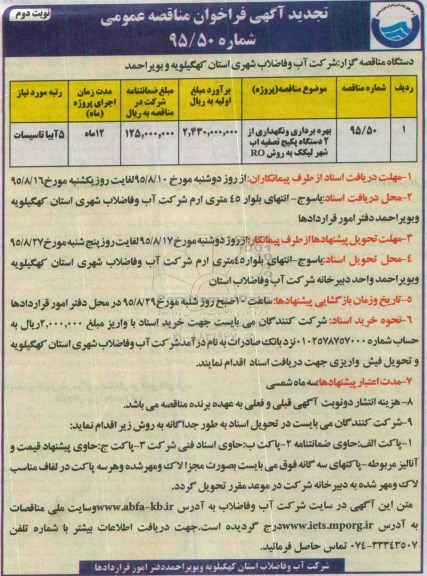 نوبت دوم
تجدید آگهی فراخوان مناقصه عمومی
شماره ۹۵/۵۰
دستگاه مناقصه گزار: شرکت آب وفاضلاب شهری استان کهگیلویه و بویراحمد
ردیف | شماره مناقصه | موضوع مناقصه(پروژه) | برآورد مبلغ اولیه به ریال | مبلغ ضمانتنامه شرکت در مناقصه به ریال | مدت زمان اجرای پروژه (ماه) | رتبه مورد نیاز
۱ | ۹۵/۵۰ | بهره برداری ونگهداری از ۲ دستگاه پکیج تصفیه آب شهر لیکک به روش RO | ۲,۴۳۰,۰۰۰,۰۰۰ | ۱۲۵,۰۰۰,۰۰۰ | ۱۲ماه | ۵آبیا تاسیسات
۱-مهلت دریافت اسناد از طرف پیمانکاران: از روز دوشنبه مورخ ۹۵/۸/۱۰لغایت روز یکشنبه مورخ ۹۵/۸/۱۶
۲-محل دریافت اسناد: یاسوج- انتهای بلوار ۴۵ متری ارم شرکت آب وفاضلاب شهری استان کهگیلویه
وبویراحمد دفتر امور قراردادها
۳-مهلت تحویل پیشنهادها از طرف پیمانکار: از روز دوشنبه مورخ ۹۵/۸/۱۷لغایت روز پنج شنبه مورخ ۹۵/۸/۲۷
۴-محل تحویل اسناد: یاسوج- انتهای بلوار ۴۵متری ارم شرکت آب وفاضلاب شهری استان کهگیلویه
وبویراحمد واحد دبیرخانه شرکت آب وفاضلاب استان
۵-تاریخ وزمان بازگشایی پیشنهادها: ساعت ۱۰صبح روز شنبه مورخ ۹۵/۸/۲۹ در محل دفتر امور قراردادها
۶-نحوه خرید اسناد: شرکت کنندگان می بایست جهت خرید اسناد با واریز مبلغ ۲,۰۰۰,۰۰۰ ریال به
حساب شماره ۰۱۰۲۵۷۸۷۵۷۰۰۰نزد بانک صادرات به نام درآمد شرکت آب وفاضلاب شهری استان کهگیلویه
و تحویل فیش واریزی جهت دریافت اسناد اقدام نمایند.
۷-مدت اعتبار پیشنهادها: سه ماه شمسی
۸-هزینه انتشار دونوبت آگهی قبلی و فعلی به عهده برنده مناقصه می باشد.
۹-شرکت کنندگان می بایست در تحویل اسناد به طور جداگانه به روش زیر اقدام نماید:
۱-پاکت الف: حاوی ضمانتنامه ۲-پاکت ب: حاوی اسناد فنی شرکت ۳-پاکت ج: حاوی پیشنهاد قیمت و
آنالیز مربوطه-پاکتهای سه گانه فوق می بایست بصورت مجزا لاک ومهر شده وهر سه پاکت در لفاف مناسب
لاک ومهر شده به دبیرخانه شرکت در موعد مقرر تحویل گردد.
متن این آگهی در سایت شرکت آب وفاضلاب به آدرس www.abfa-kb.ir وسایت ملی مناقصات
به آدرس www.iets.mporg.ir درج گردیده است. جهت دریافت اطلاعات بیشتر با شماره تلفن
۰۷۴-۳۳۳۴۳۵۰۷ تماس حاصل فرمائید.
شرکت آب وفاضلاب استان کهگیلویه وبویراحمد دفتر امور قراردادها